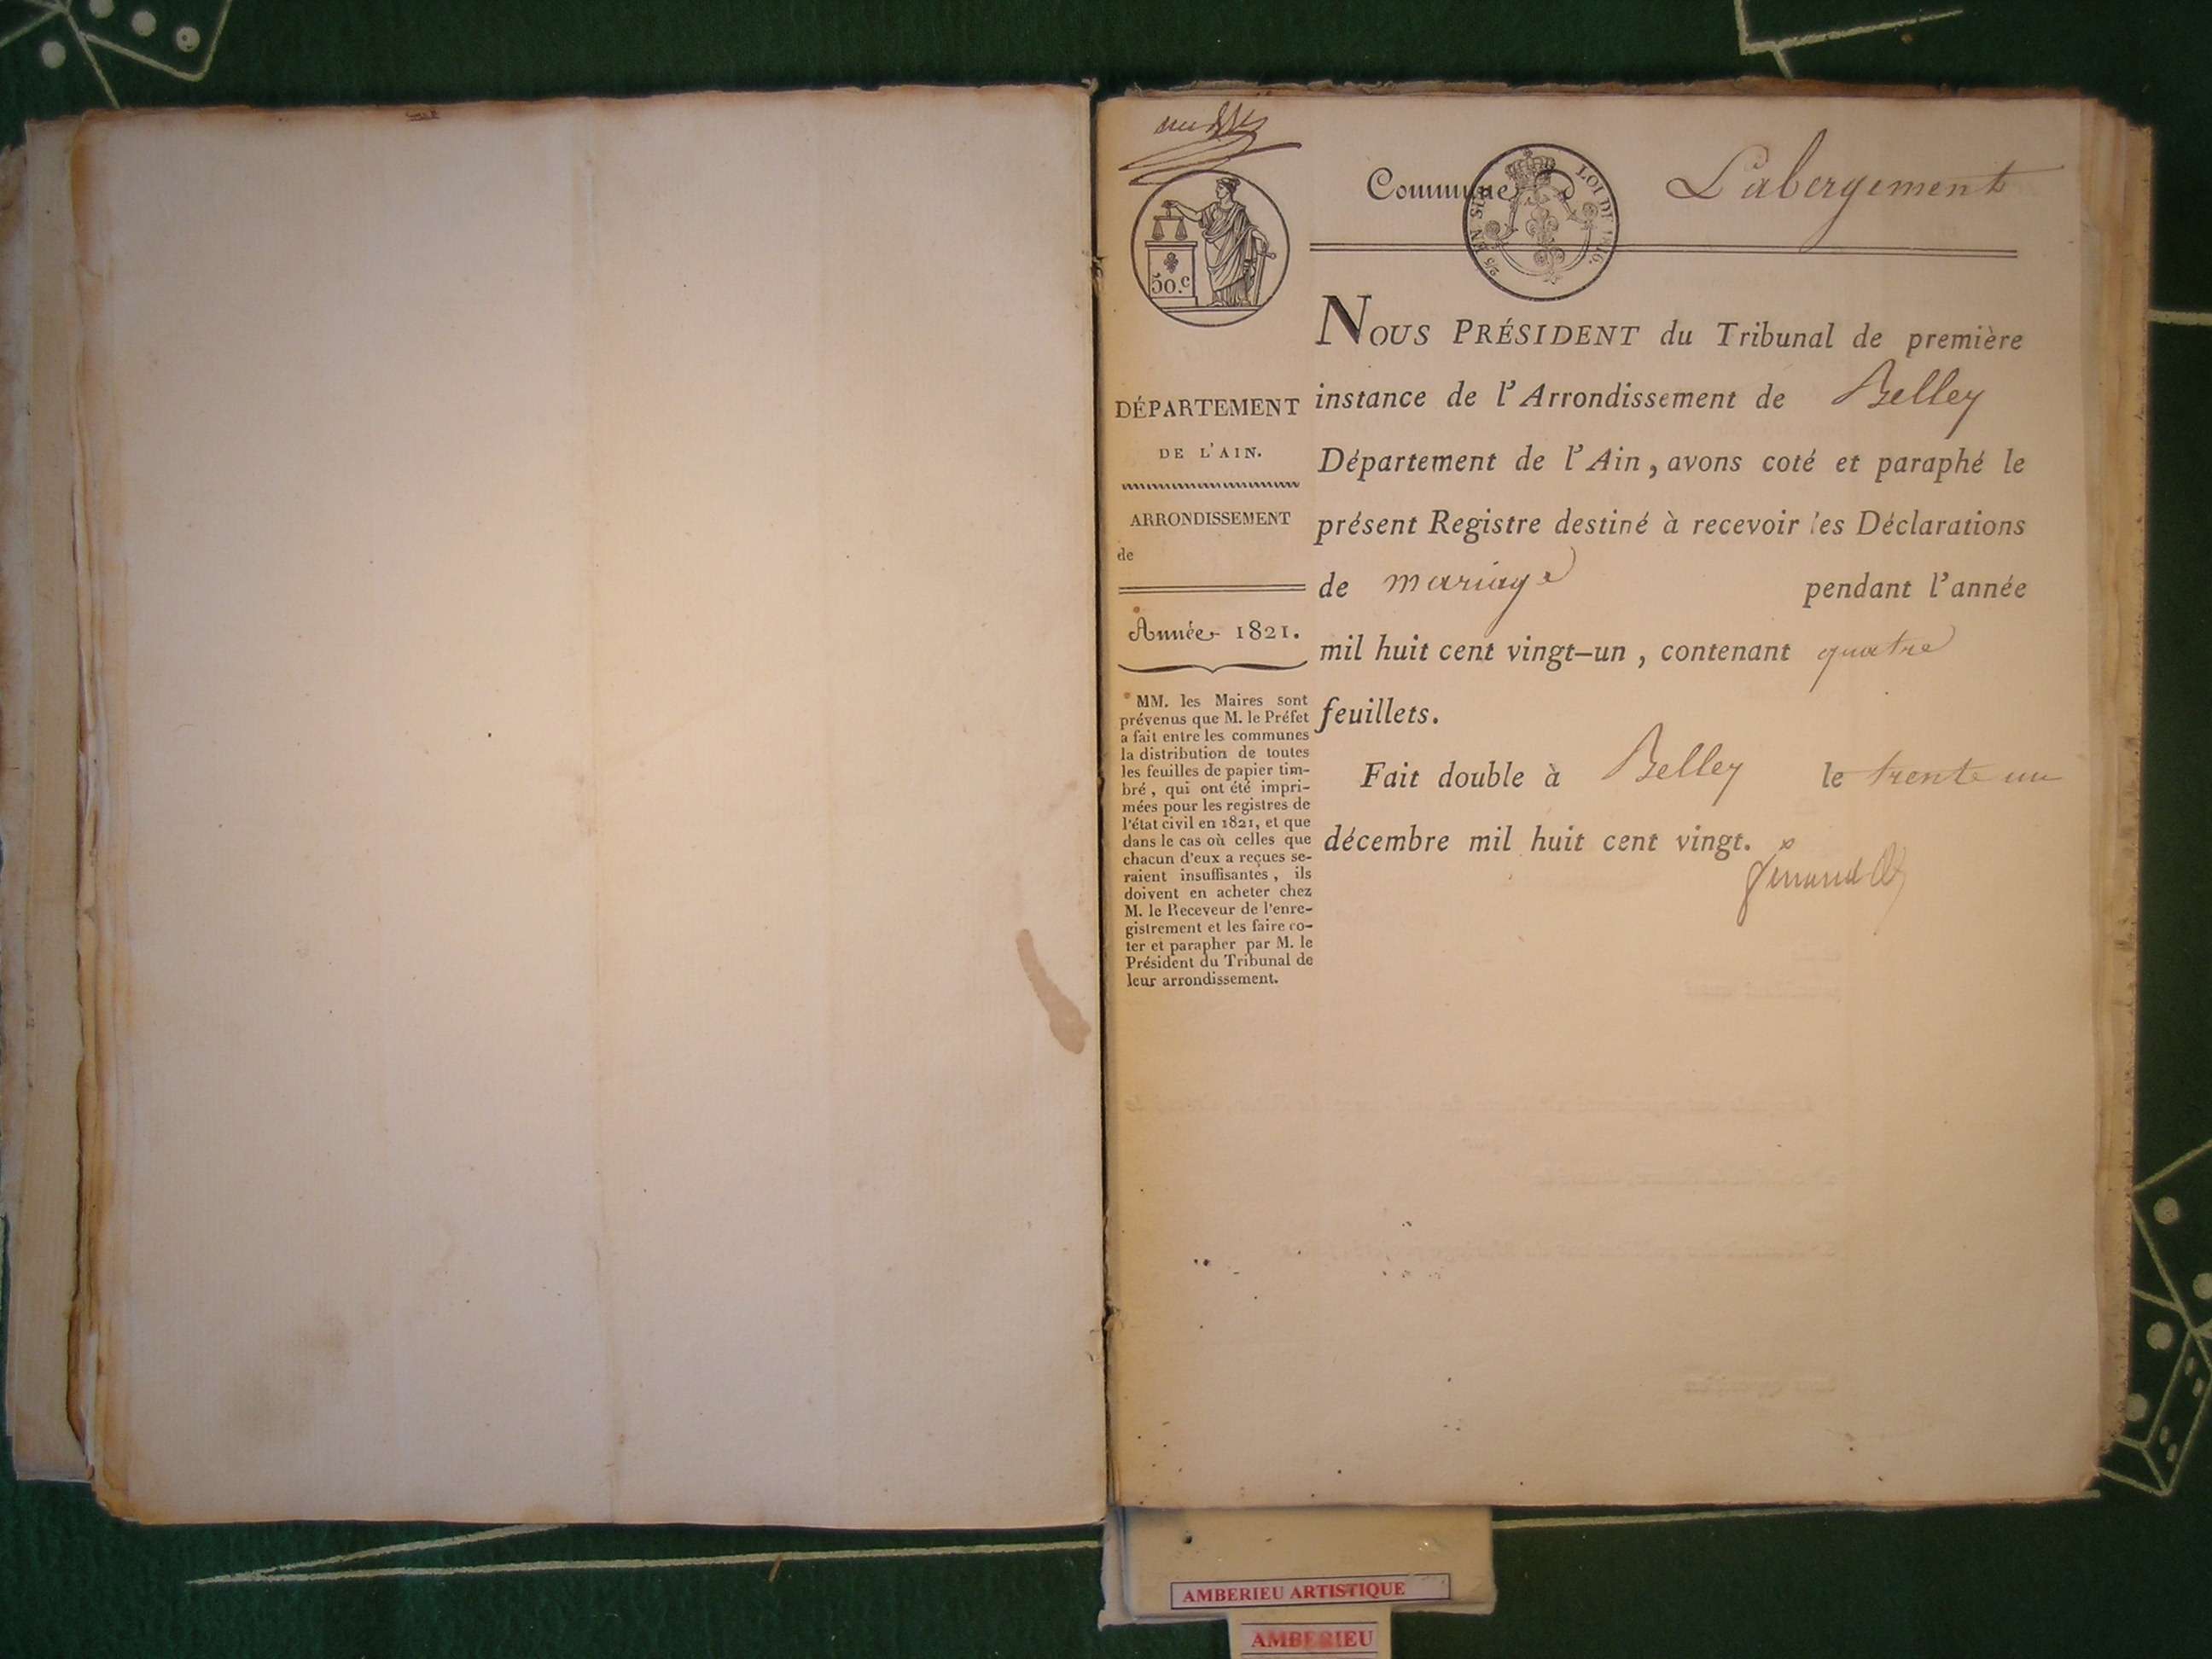 Commune de L'abergement
2/5 EN SUS. LOI DE 1816.
50.c
NOUS PRÉSIDENT du Tribunal de première
instance de l'Arrondissement de Belley
Département de l'Ain, avons coté et paraphé le
présent Registre destiné à recevoir les Déclarations
de mariage pendant l'année
mil huit cent vingt-un, contenant quatre
feuillets.
Fait double à Belley le trente un
décembre mil huit cent vingt.
DÉPARTEMENT
DE L'AIN.
ARRONDISSEMENT
de
Année 1821.
MM. les Maires sont
prévenus que M. le Préfet
a fait entre les communes
la distribution de toutes
les feuilles de papier tim-
bré, qui ont été impri-
mées pour les registres de
l'état civil en 1821, et que
dans le cas où celles que
chacun d'eux a reçues se-
raient insuffisantes, ils
doivent en acheter chez
M. le Receveur de l'enre-
gistrement et les faire co-
ter et parapher par M. le
Président du Tribunal de
leur arrondissement.
AMBERIEU ARTISTIQUE
AMBERIEU